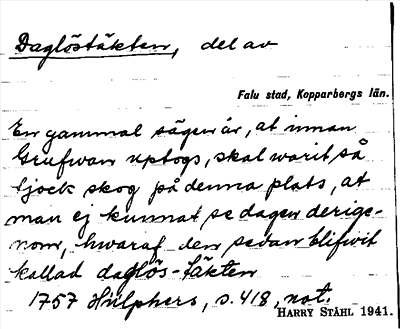 Daglöstäkten, del av
Falu stad, Kopparbergs län.
En gammal sägen är, at innan
Grufwan uptogs, skal warit så
tjock skog på denna plats, at
man ej kunnat se dagen derige-
nom, hwaraf den sedan blifwit
kallad daglös-täkten
1757 Hülphers, s. 418, not.
HARRY STÅHL 1941.